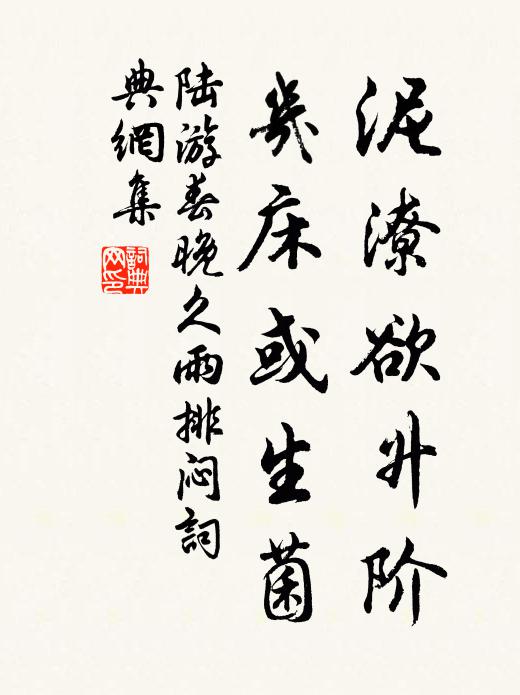 泥潦欲升阶
几床或生菌
陆游春晚久雨排闷詞
典網集
詞典網印